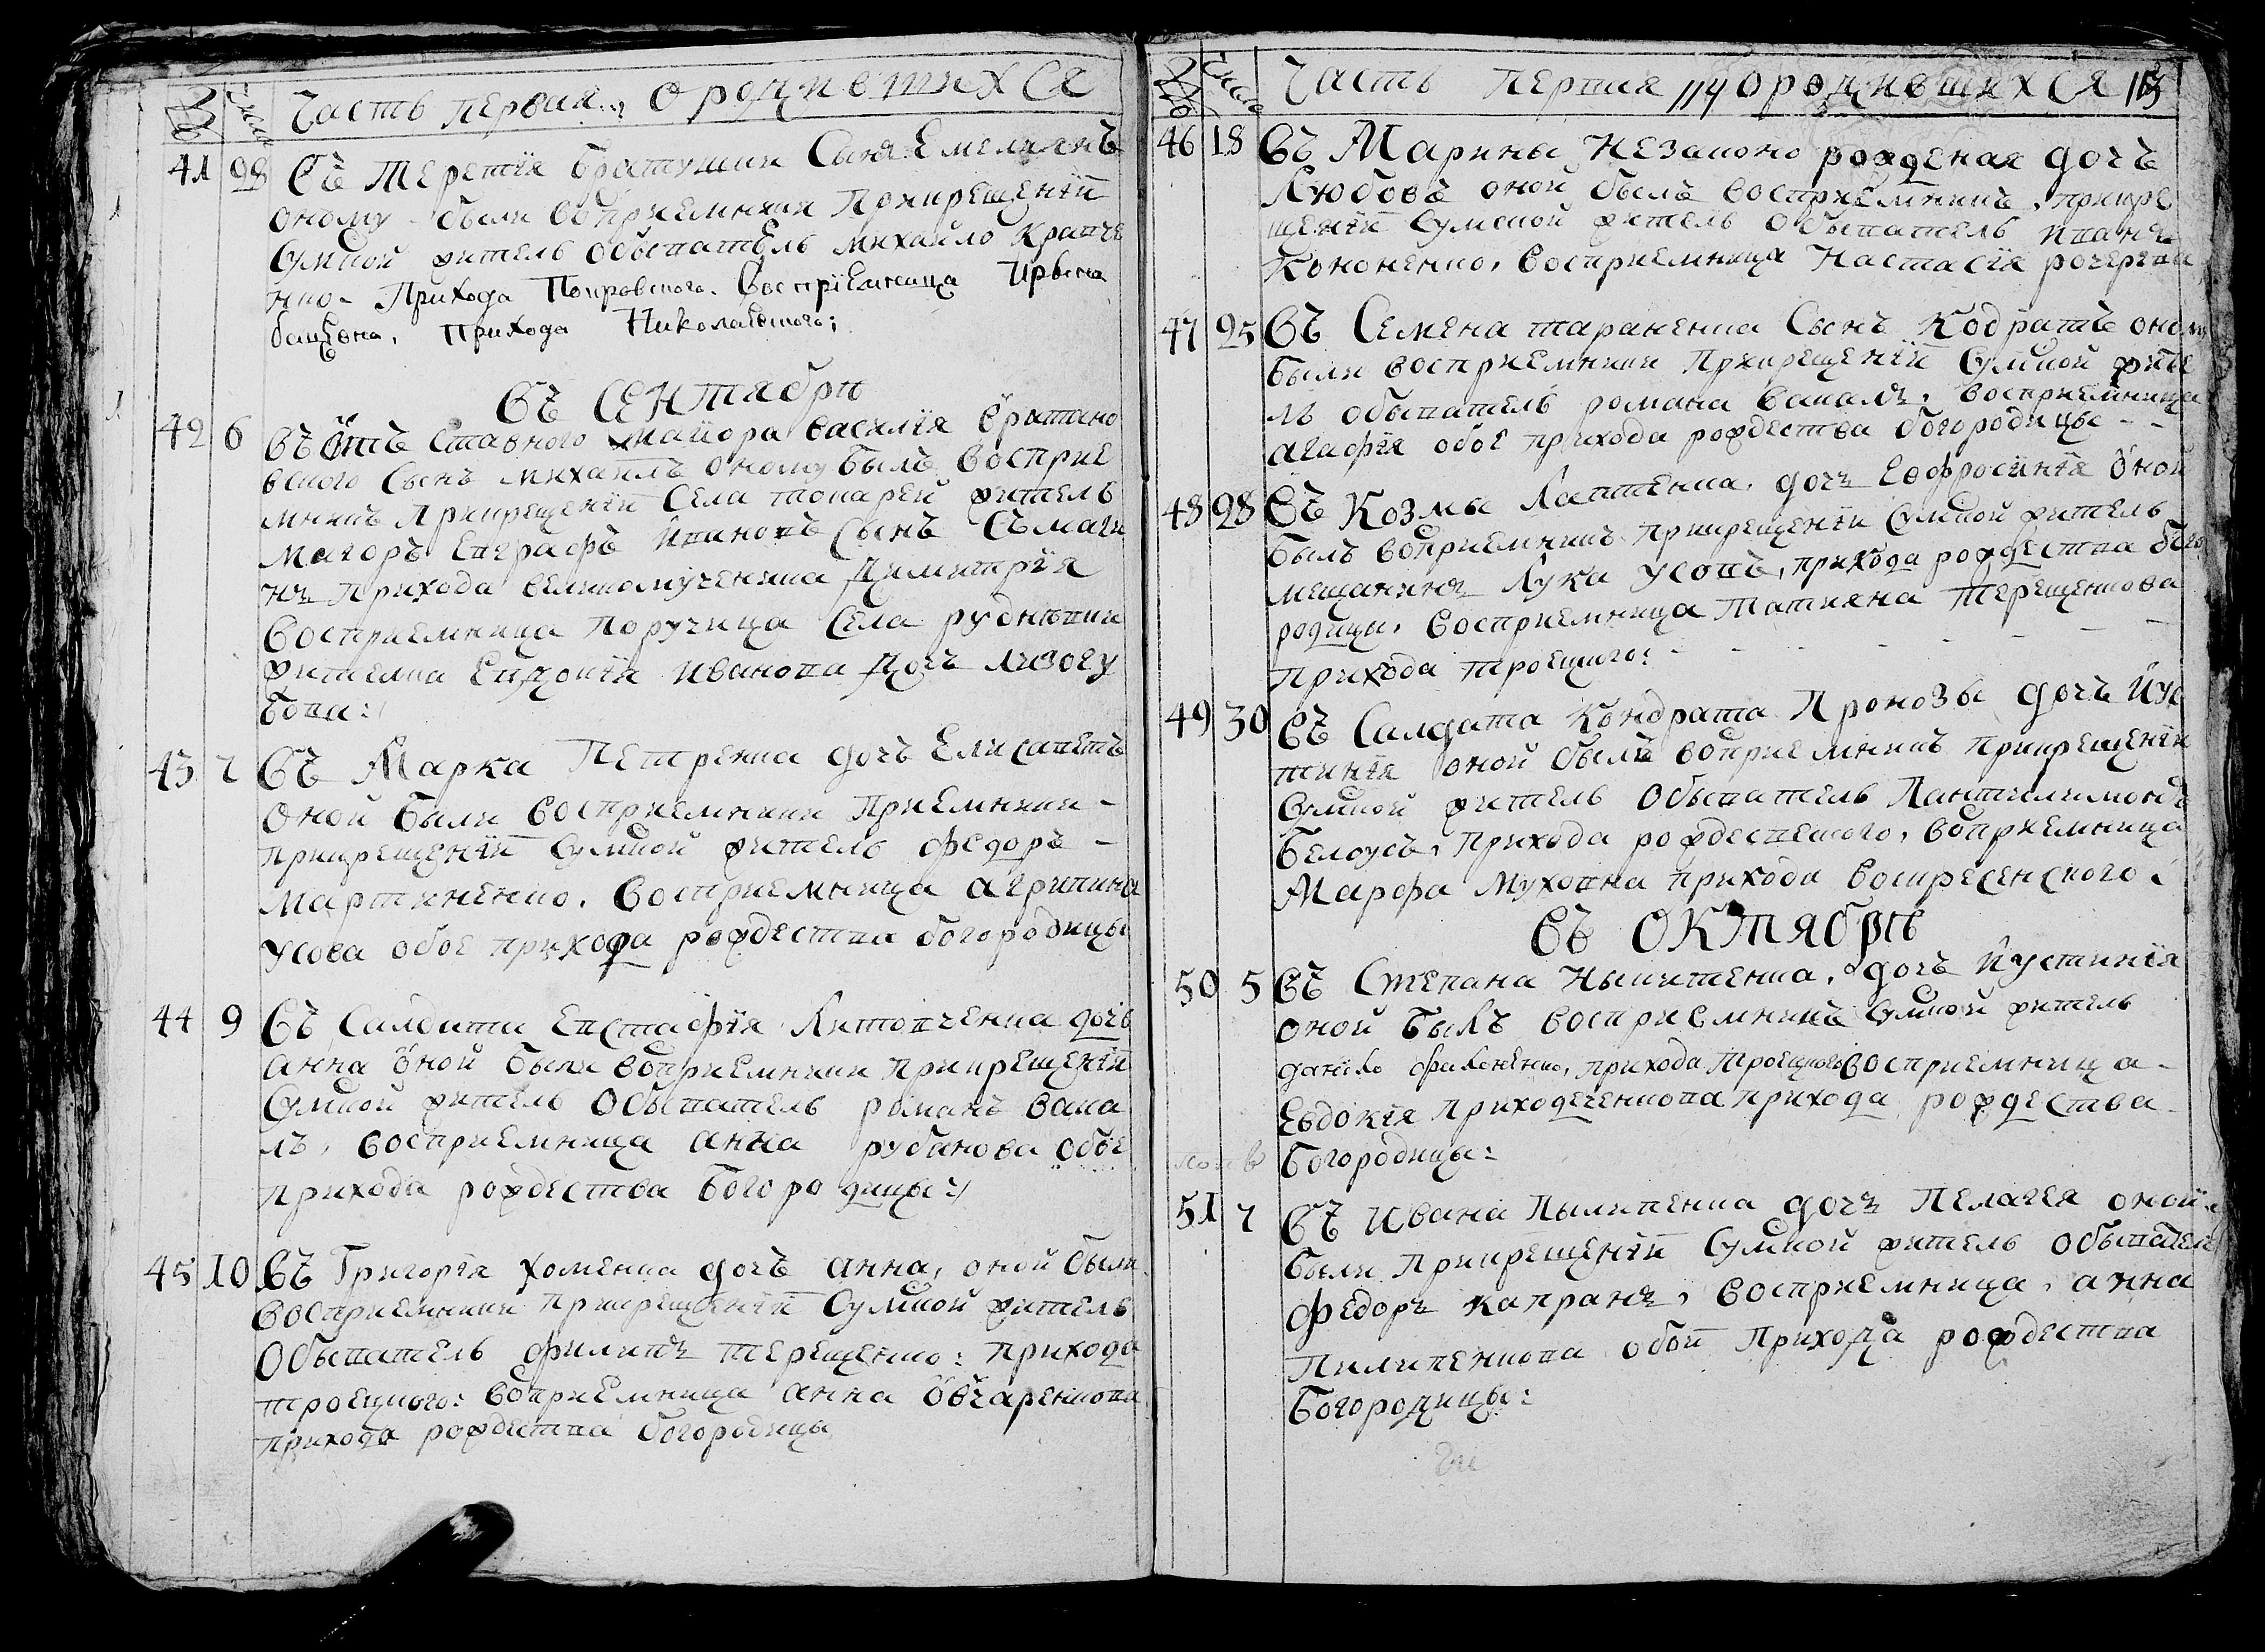 № Число Часть первая о родившихся
41 28 Въ Терентiя Братушки Сынъ Емелиянъ
оному были воприемники Прикрещенiи
Сумской житель Обыватель михайло Крапче
нко Прихода Покровского. Воспрiемница Ирвона
Прихода Николаевского;
Въ Сентябри
42 6 въ отъ ставного маиора василiя
вского Сынъ михаилъ оному былъ восприе
мникъ Прикрещенiи Села токарей житель
Маiоръ Евграфъ Ивановъ Сынъ Съмаги
нъ прихода великомученика Димитрiя
Восприемница Поручица Села руднѣвки
жителка Евдокiя Иванова Дочъ лизогу
бова:
43 7 Въ Марка Петренка дочъ Елисаветъ
оной были восприемники Приемники -
прикрещенiи Сумской житель федоръ -
мартиненко. восприемница агрипина
Усова обое прихода рождества богородицы
44 9 Въ Салдати Евстафiя Литовченка дочъ
анна оной были воприемники прикрещенiи
Сумской житель Обыватель романъ вака
лъ, восприемница анна рубанова обое
прихода рождества Богородицы:
45 10 Въ Григорiя хоменка дочъ анна, оной были
восприемники прикрещенiи Сумской житель
Обыватель филипъ терещенко: прихода
троецкого: воприемница анна овчаренкова
прихода рождества богородици
№ Число Часть первая 114 о родившихся 113
46 18 Въ Марины незаконо рожденая дочъ
Любовъ оной былъ восприемникъ, прикре
щенiи Сумской житель Обыватель иванъ
Кононенко, восприемница Настасiя
47 25 Въ Семена тараненка Сынъ Кодратъ оному
были восприемники Прикрещенiи Сумской жите
ль обыватель романа вакалъ, восприемница
агафiя обое прихода рождества богородицы - -
48 28 Въ Козмы Лаптенка, дочъ Еофросинiя оной
былъ воприемникъ прикрещенiи Сумской житель
мещанинъ Лука Усовъ, прихода рождества бого
родицы, восприемница Татияна Терещенкова
прихода троецкого:
49 30 Въ Салдата Кондрата Пронозы дочъ Иус
тинiя оной былъ воприемникъ прикрещенiи
Сумской житель Обыватель Пантилимонъ
Белоусъ, прихода рождественского, воприемница
Марфа Муховна прихода воскресенского
Въ Октябрѣ
50 5 Въ Степана Никитенка, дочъ Иустинiя
оной былъ восприемникъ Сумской житель
данило филоненко, прихода троецкого восприемница -
Евдокiя Приходеченкова прихода рождества
Богородицы:
51 7 Въ Ивана Пылипенка дочъ Пелагея оной
были прикрещенiи Сумской житель обыватель
федоръ капранъ, восприемница, анна
Пилипенкова обои прихода рождества
Богородицы: